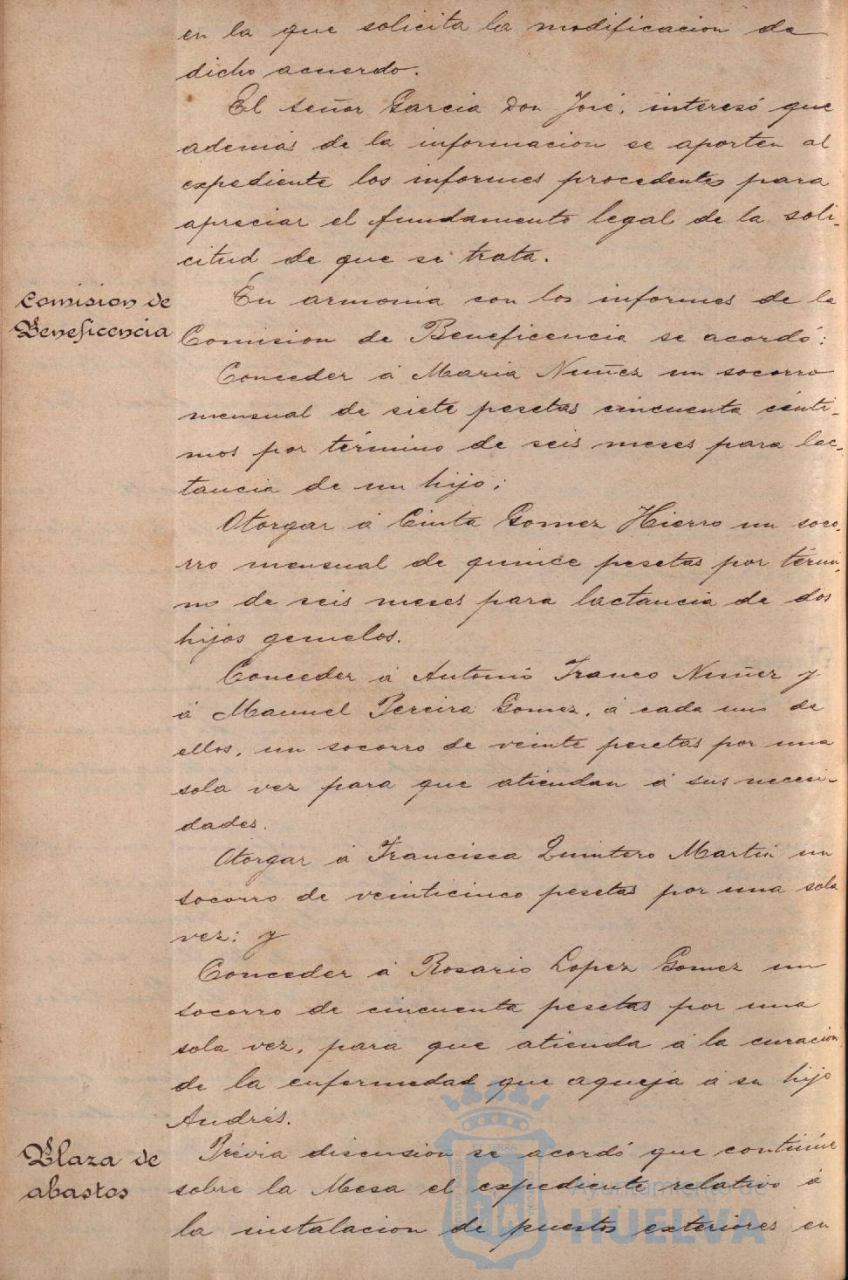 en la que solicita la modificacion de
dicho acuerdo.
El señor Garcia Don José, interesó que
además de la informacion se aporten al
expediente los informes procedentes para
apreciar el fundamento legal de la soli-
citud de que se trata.
Comision de
Beneficencia
En armonia con los informes de la
Comision de Beneficencia se acordó:
Conceder á Maria Nuñez un socorro
mensual de siete pesetas cincuenta cénti-
mos por término de seis meses para lac-
tancia de un hijo;
Otorgar á Cinta Gomez Hierro un soco-
rro mensual de quince pesetas por térmi-
no de seis meses para lactancia de dos
hijos gemelos.
Conceder á Antonio Franco Nuñez y
á Manuel Pereira Gomez, á cada uno de
ellos, un socorro de veinte pesetas por una
sola vez para que atiendan á sus necesi-
dades.
Otorgar á Francisca Quintero Martin un
socorro de veinticinco pesetas por una sola
vez; y
Conceder á Rosario Lopez Gomez un
socorro de cincuenta pesetas por una
sola vez, para que atienda á la curacion
de la enfermedad que aqueja á su hijo
Andrés.
Plaza de
abastos
Prévia discusion se acordó que continúe
sobre la Mesa el expediente relativo á
la instalacion de puestos exteriores en
Ayuntamiento de
HUELVA